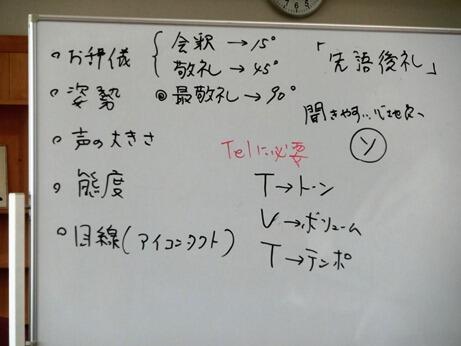 お辞儀 { 会釈→15°
敬礼→45°
◎最敬礼→90°
「先語後礼」
○姿勢
聞きやすい、心地良い
ソ
○声の大きさ
Telに必要
○態度
T→トーン
V→ボリューム
T→テンポ
○目線(アイコンタクト)